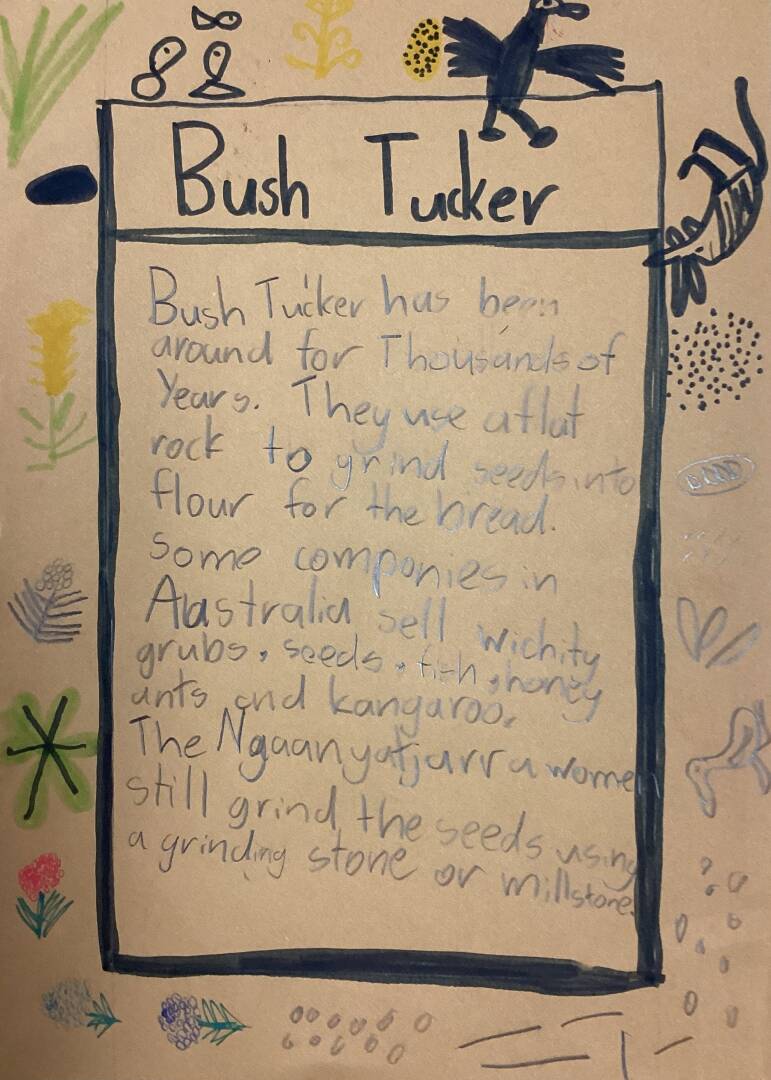 Bush Tucker
Bush Tucker has been
around for Thousands of
Years. They use a flat
rock to grind seeds into
flour for the bread.
Some companies in
Australia sell wichity
grubs, seeds, fish, honey
ants and kangaroo.
The Ngaanyatjarra women
still grind the seeds using
a grinding stone or millstone.